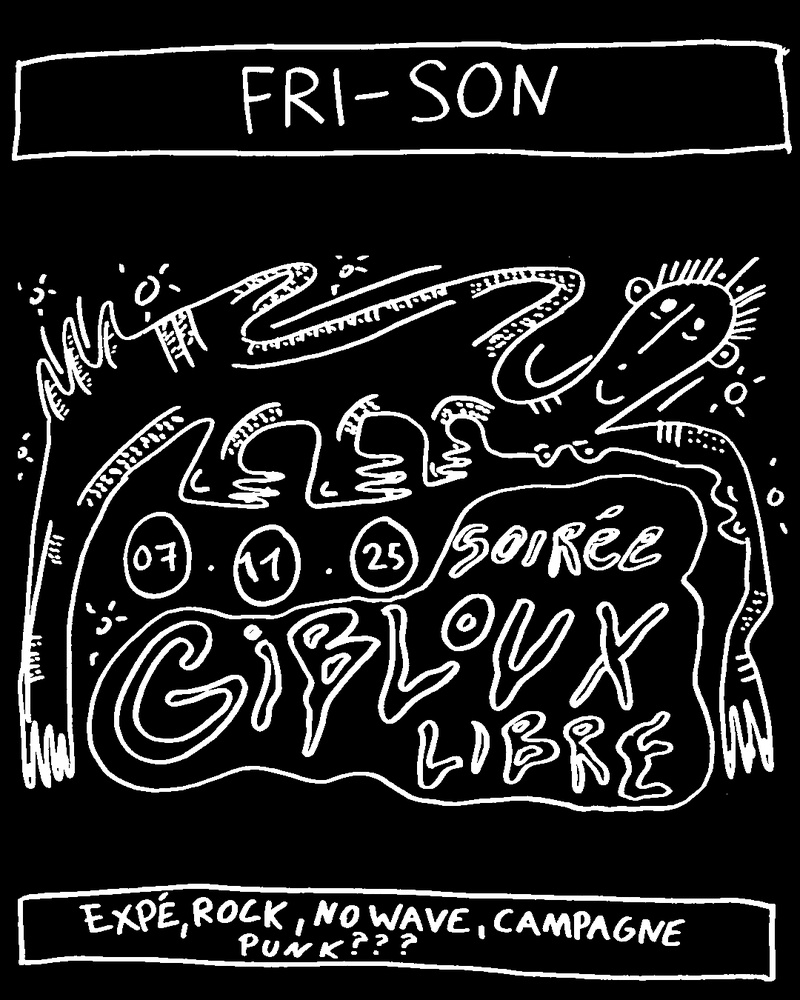 FRI-SON
07.11.25
SOIRÉE
GIBLOUX
LIBRE
EXPÉ, ROCK, NO WAVE, CAMPAGNE
PUNK???